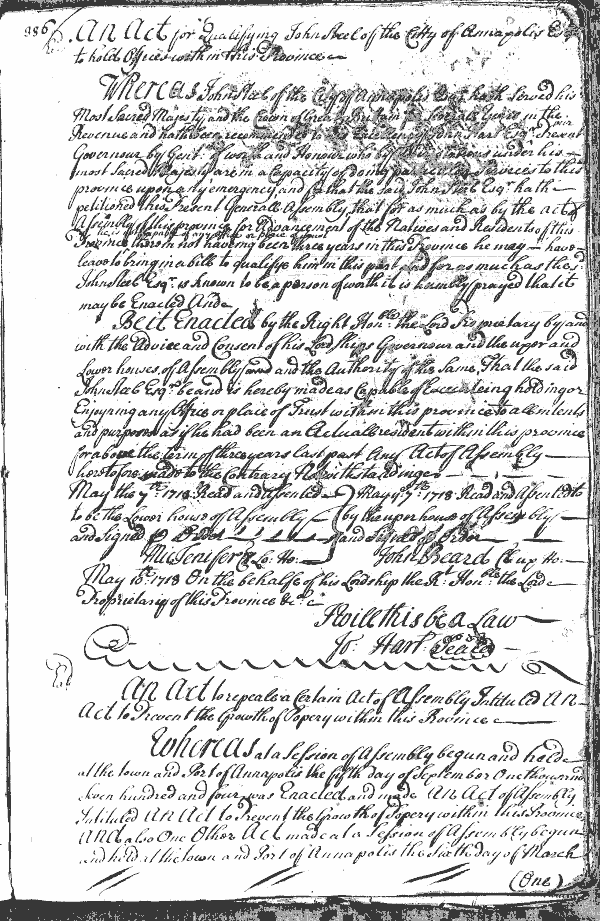 986
An Act for Qualifying John Steel of the Citty of Annapolis Esqr
to hold Offices within this Province
Whereas John Steel of the City of Annapolis Esqr hath Served his
Most Sacred Majesty and the Crown of Great Britain in in the
Revenue and hath been recommended to his Excellency John Hart Esqr
Governour by Gent: of worth and Honour who by Stations under his
most Sacred Majesty are in a Capacity of doing particular Services to this
province upon any emergency and for that the said John Steel Esqr hath
petitioned this Present Generall Assembly that for as much as by the act of
Assembly of this province for Advancement of the Natives and Residents of this
Province therein not having been three years in this Province he may have
leave to bring in a bill to qualifye him in this part and for as much as the sd
John Steel Esqr is Known to be a person of worth it is humbly prayed that it
may be Enacted And
Be it Enacted by the Right Honble the Lord Proprietary by and
with the Advice and Consent of his Lordships Governour and the upper and
Lower houses of Assembly and the Authority of the Same, That the said
John Steel Esqr be and is hereby made as Capable of Executeing holding or
Enjoying any Office or place of Trust within this province to all intents
and purposes as if he had been an Actuall resident within this province
for above the term of three years last past Any Act of Assembly
heretofore made to the Contrary Notwithstanding
May the 7th 1718 Read and Assented May 9th 1718 Read and Assented to
to be the Lower house of Assembly by the uper house of Assembly
and Signed p Order and Signed p Order
Mic Jenifer Cl Lo: Ho: John Beard Cl up Ho:
May 10th 1718 On the behalfe of his Lordship the Rt Honble the Lord
Proprietary of this Province &c
I will this be a Law
Jo: Hart Seale
An Act to repeale a Certain Act of Assembly Intituled An
Act to Prevent the Growth of Popery within this Province
Whereas at a Session of Assembly begun and held
at the town and Port of Annapolis the fifth day of September One thousand
seven hundred and four was Enacted and made An Act of Assembly
Intituled An Act to Prevent the Growth of Popery within this Province
And also One Other Act made at a Session of Assembly begun
and held at the town and Port of Annapolis the Sixth day of March
(One)